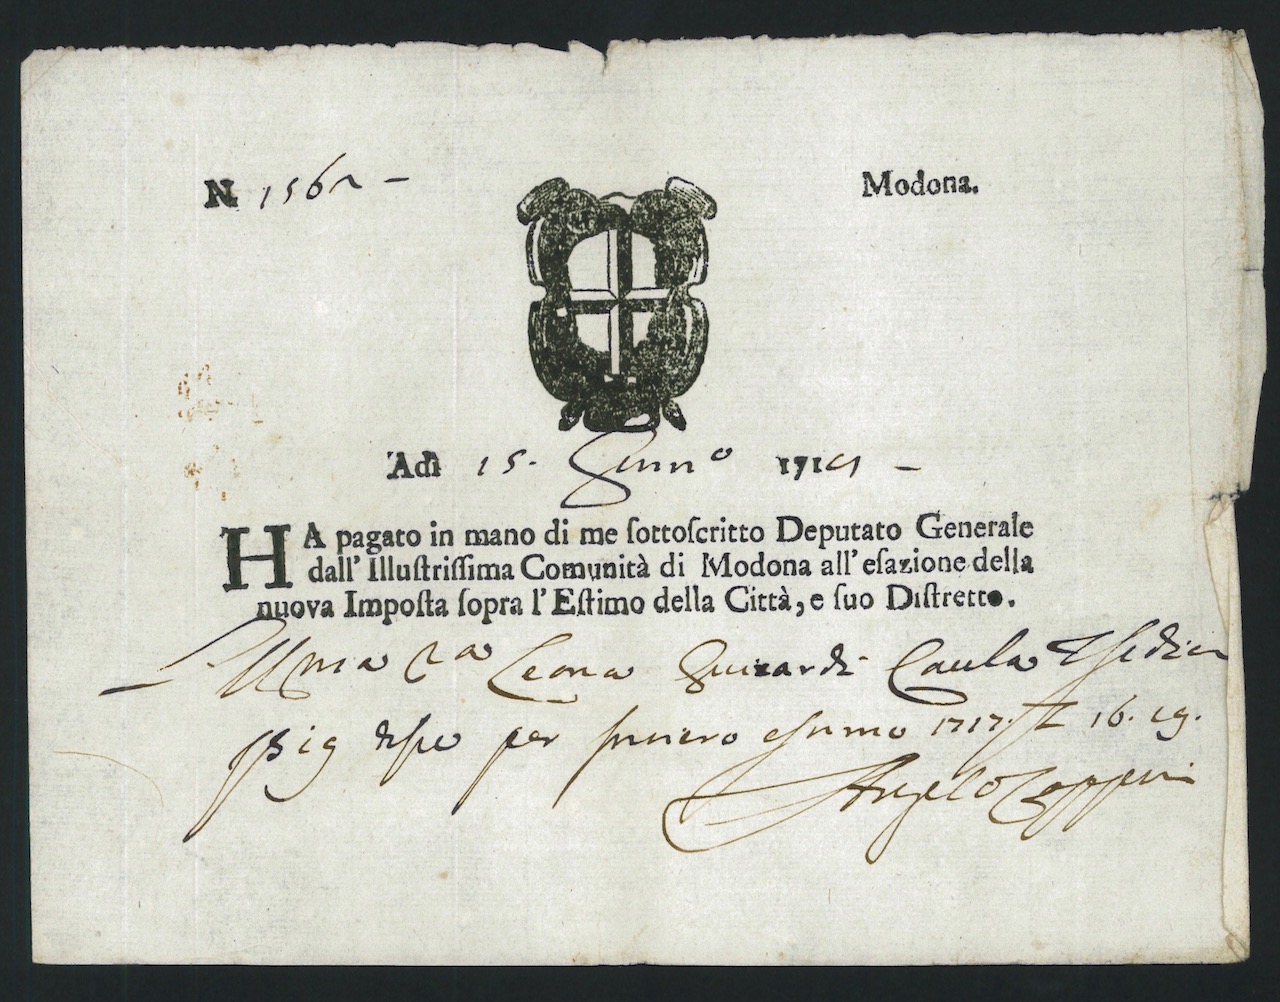 N 1562 Modona.
Adì 15. Genn.o 171
HA pagato in mano di me ſottoſcritto Deputato Generale
dall' Illuſtriſſima Comunità di Modona all' eſazione della
nuova Impoſta ſopra l'Eſtimo della Città, e ſuo Diſtretto.
Leona Guizardi Caula
per eſtimo 1717. 16. 19.
Angelo Coppini